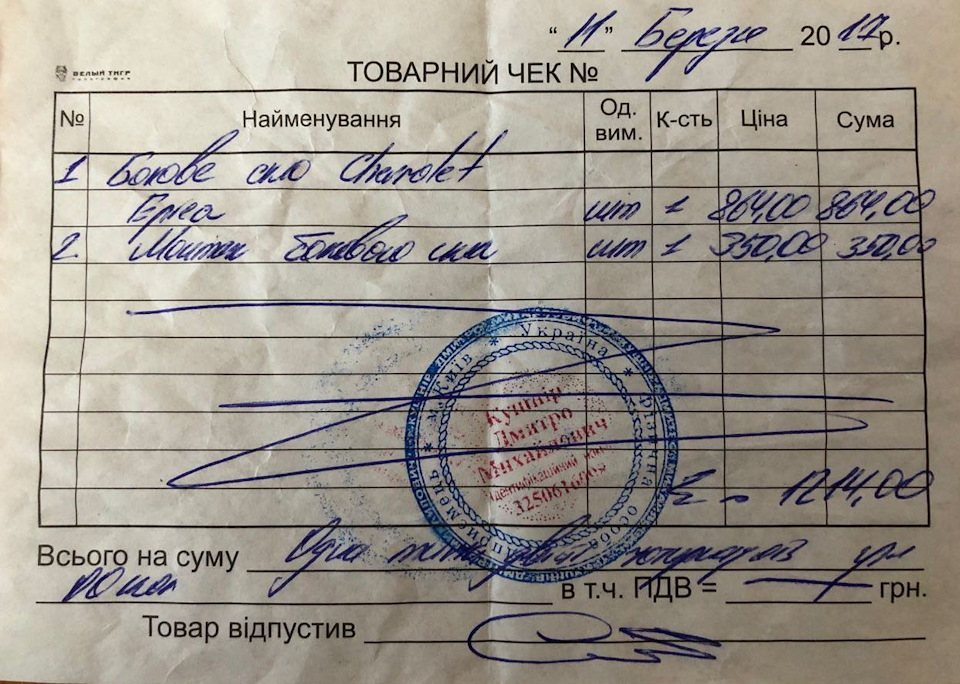 “ 11 ” Березня 20 17 р.
БЕЛЫЙ ТИГР
ТОВАРНИЙ ЧЕК №
№ Найменування Од. вим. К-сть Ціна Сума
1 Бокове скло Chevrolet
Epica шт 1 864,00 864,00
2. Монтаж бокового скла шт 1 350,00 350,00
Україна * Фізична особа-підприємець * м. Київ *
Кушнір
Дмитро
Михайлович
Ідентифікаційний номер
Σ = 1214,00
Всього на суму Одна тисяча двісті чотирнадцять грн
00 коп в т.ч. ПДВ = — грн.
Товар відпустив